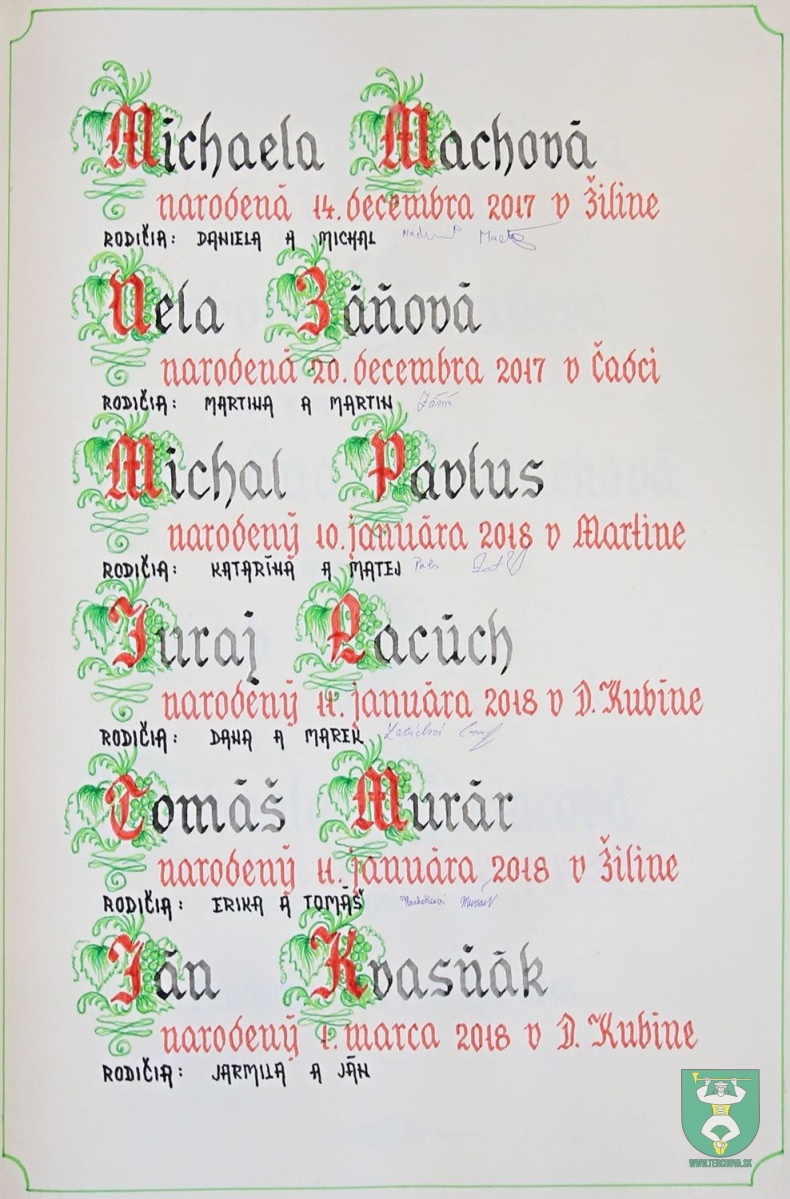 Michaela Machová
narodená 14. decembra 2017 v Žiline
RODIČIA: DANIELA A MICHAL
Nela Záňová
narodená 20. decembra 2017 v Čadci
RODIČIA: MARTINA A MARTIN
Michal Pavlus
narodený 10. januára 2018 v Martine
RODIČIA: KATARÍNA A MATEJ
Juraj Lacúch
narodený 11. januára 2018 v D. Kubíne
RODIČIA: DANA A MAREK
Tomáš Murár
narodený 11. januára 2018 v Žiline
RODIČIA: ERIKA A TOMÁŠ
Ján Kvasňák
narodený 1. marca 2018 v D. Kubíne
RODIČIA: JARMILA A JÁN
WWW.TERCHOVA.SK